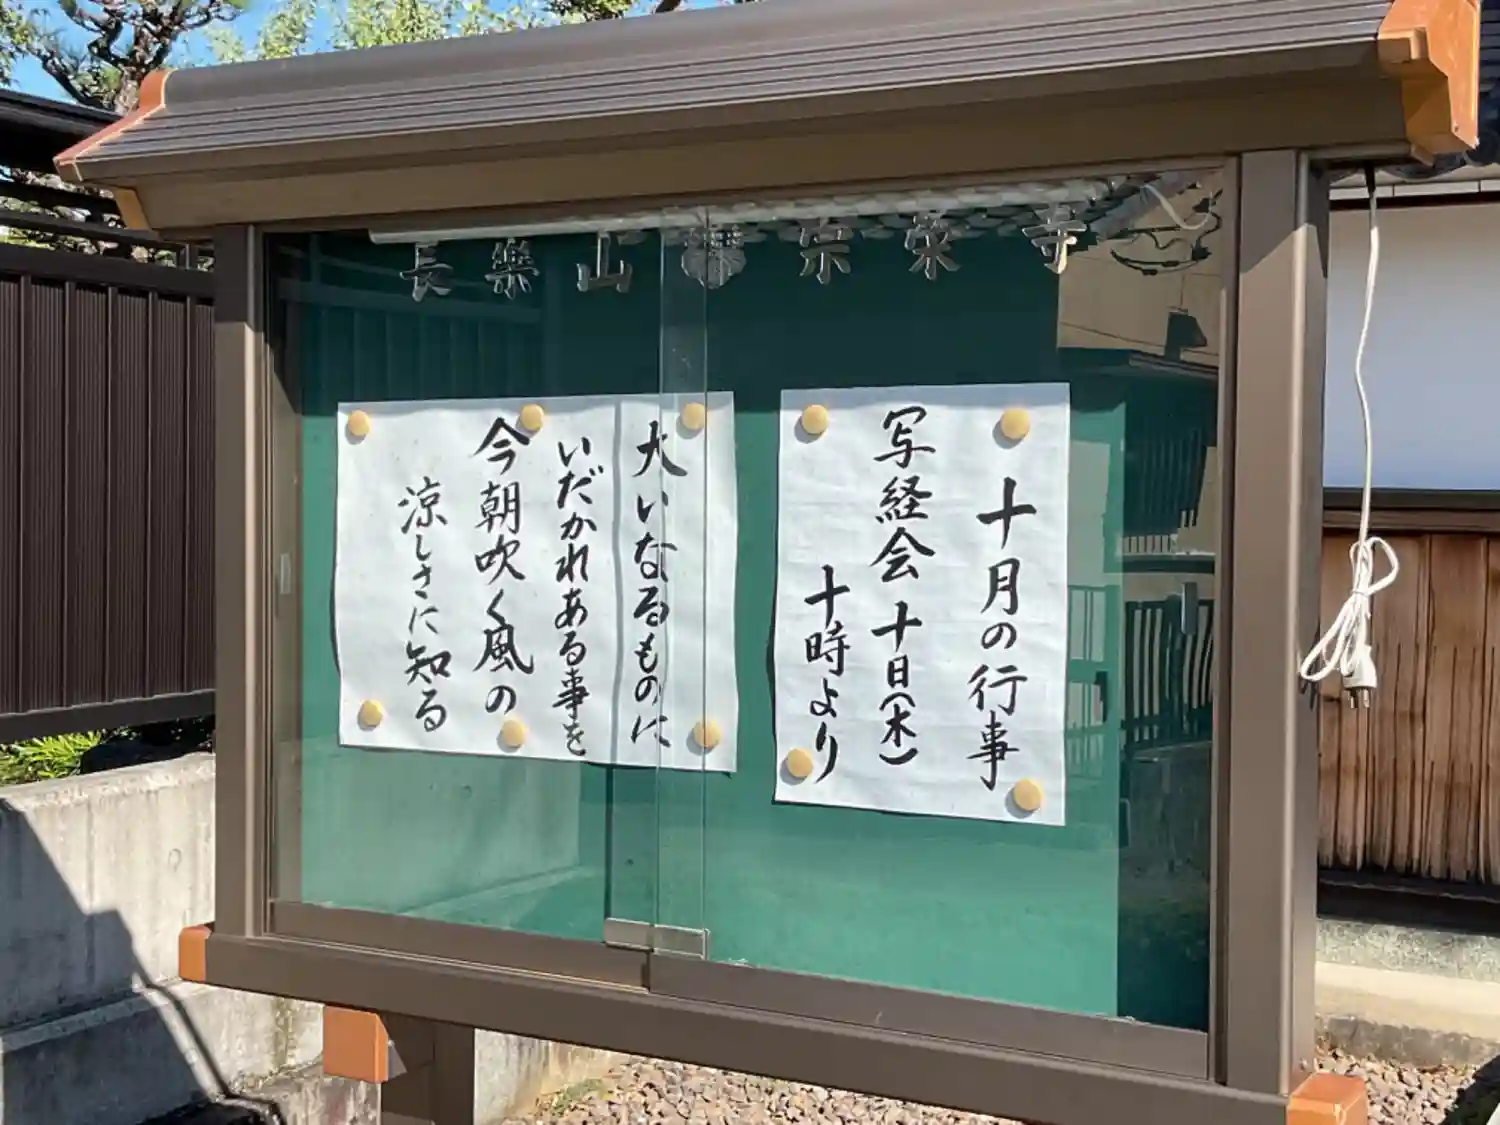 長樂山 宗榮寺
十月の行事
写経会 十日(木)
十時より
大いなるものに
いだかれある事を
今朝吹く風の
涼しさに知る